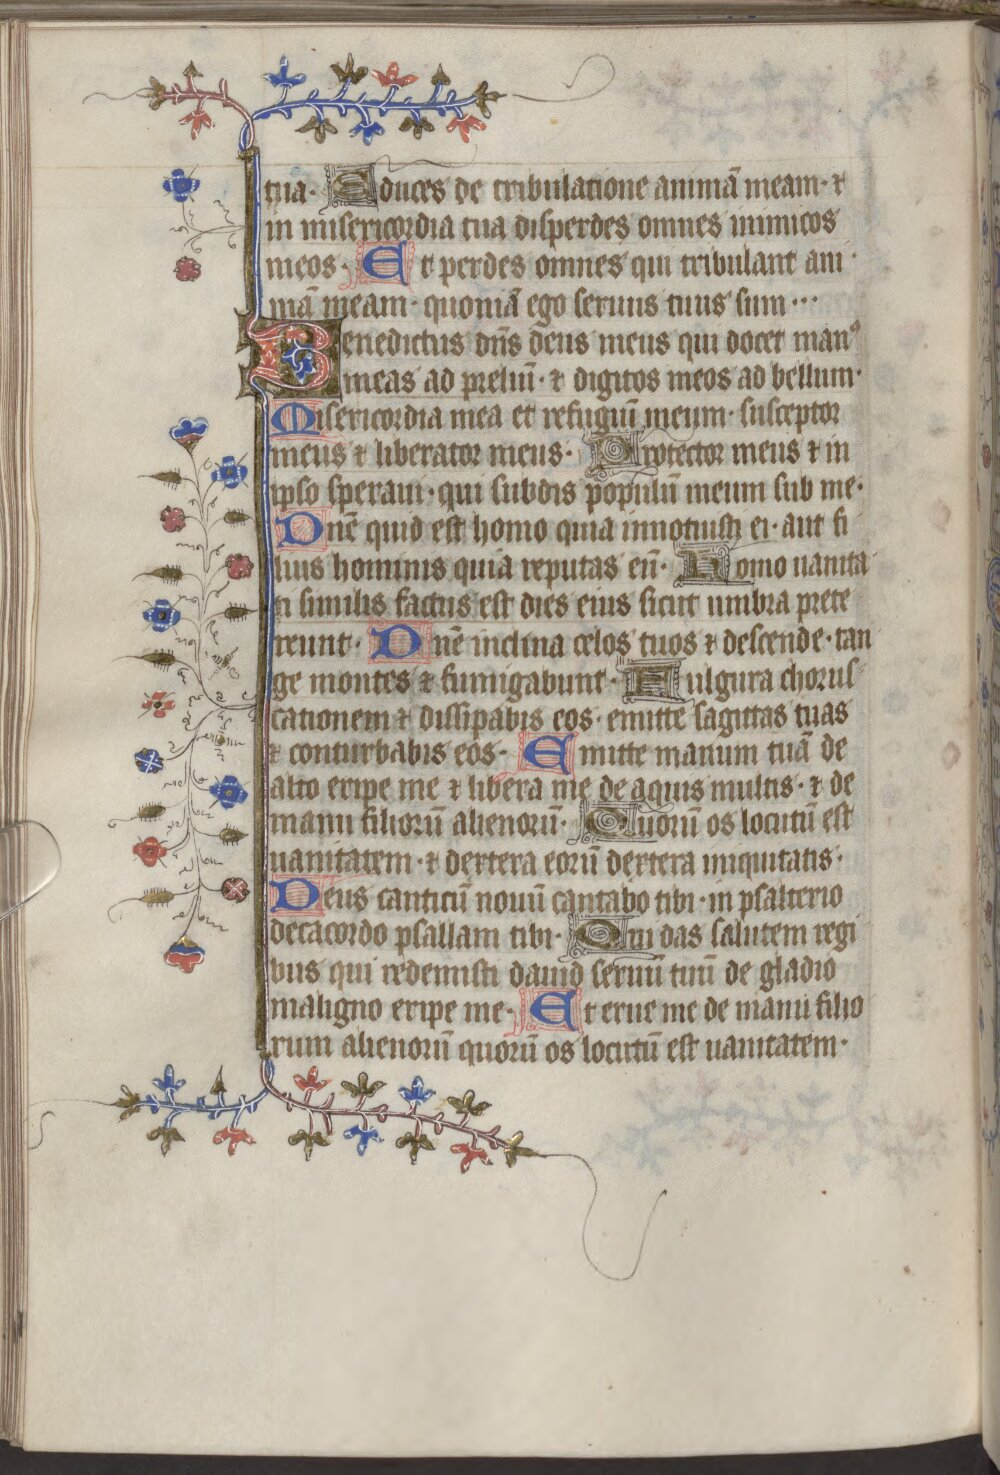 tua· Educes de tribulatione animā meam· ⁊
in misericordia tua disperdes omnes inimicos
meos· Et perdes omnes qui tribulant ani·
mā meam· quoniā ego seruus tuus sum···
Benedictus dn̄s deus meus qui docet manꝰ
meas ad preliū· ⁊ digitos meos ad bellum·
Misericordia mea et refugiū meum· susceptor
meus ⁊ liberator meus· Protector meus ⁊ in
ipso speraui· qui subdis populū meum sub me·
Dn̄e quid est homo quia innotuisti ei· aut fi
lius hominis quia reputas eū· Homo uanita
ti similis factus est dies eius sicut umbra prete
reunt· Dn̄e inclina celos tuos ⁊ descende· tan
ge montes ⁊ fumigabunt· Fulgura chorus
cationem ⁊ dissipabis eos· emitte sagittas tuas
⁊ conturbabis eos· Emitte manum tuā de
alto eripe me ⁊ libera me de aquis multis· ⁊ de
manu filiorū alienorū· Quorū os locutū est
uanitatem· ⁊ dextera eorū dextera iniquitatis·
Deus canticū nouū cantabo tibi· in psalterio
decacordo psallam tibi· Qui das salutem regi
bus qui redemisti dauid seruū tuū de gladio
maligno eripe me· Et erue me de manu filio
rum alienorū quorū os locutū est uanitatem·